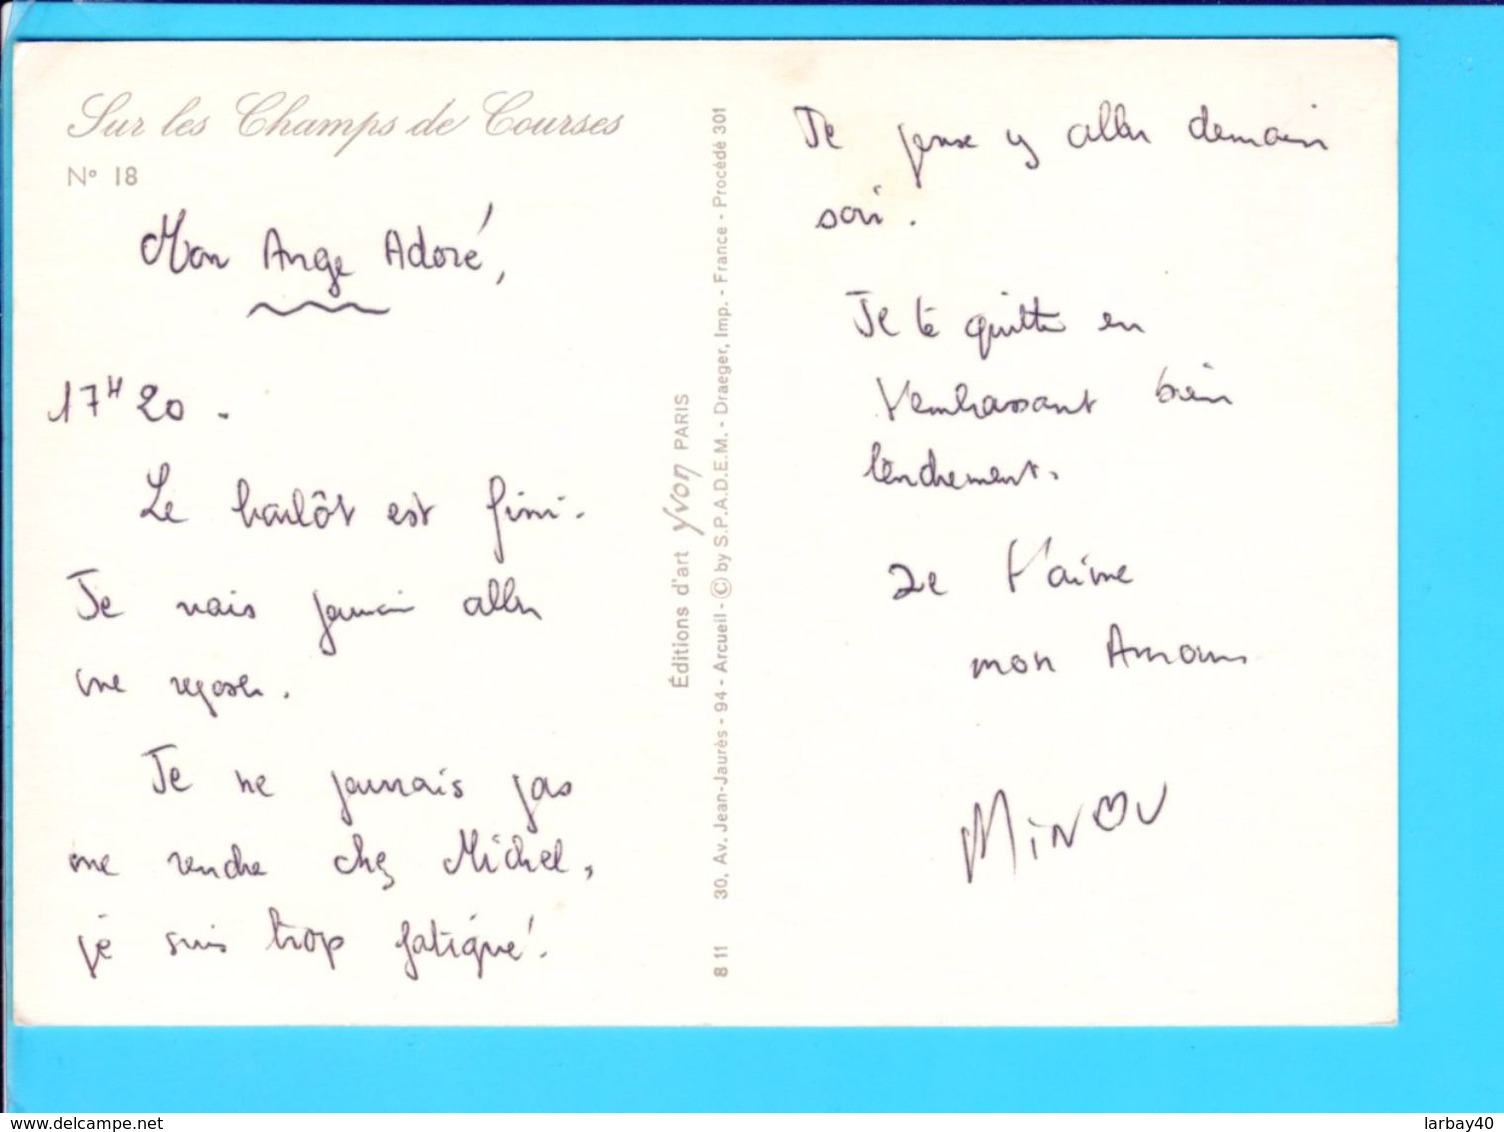 Sur les Champs de Courses
N° 18
Mon Ange Adoré,
17H20.
Le boulôt est fini.
Je vais pouvoir aller
me reposer.
Je ne pourrais pas
me rendre chez Michel,
je suis trop fatigué.
Éditions d'art Yvon PARIS
8 11 30, Av. Jean-Jaurès - 94 - Arcueil - © by S.P.A.D.E.M. - Draeger, Imp. - France - Procédé 301
Je pense y aller demain
soir.
Je te quitte en
t'embrassant bien
tendrement.
Je t'aime
mon Amour
MINOU
www.delcampe.net
larbay40